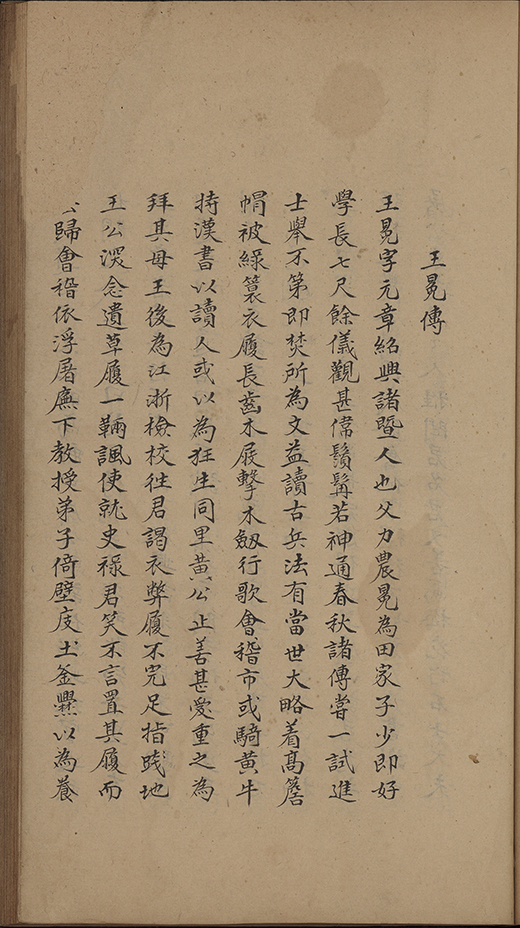 王冕傳
王冕字元章紹興諸暨人也父力農冕為田家子少即好
學長七尺餘儀觀甚偉鬚髯若神通春秋諸傳嘗一試進
士舉不第即焚所為文益讀古兵法有當世大略着高簷
帽被綠簑衣履長齒木屐擊木劔行歌會稽市或騎黃牛
持漢書以讀人或以為狂生同里黃公止善甚愛重之為
拜其母王後為江浙檢校往君謁衣弊履不完足指踐地
王公深念遺草履一輛諷使就史祿君笑不言置其履而
去歸會稽依浮屠廡下教授弟子倚壁庋土釜爨以為養